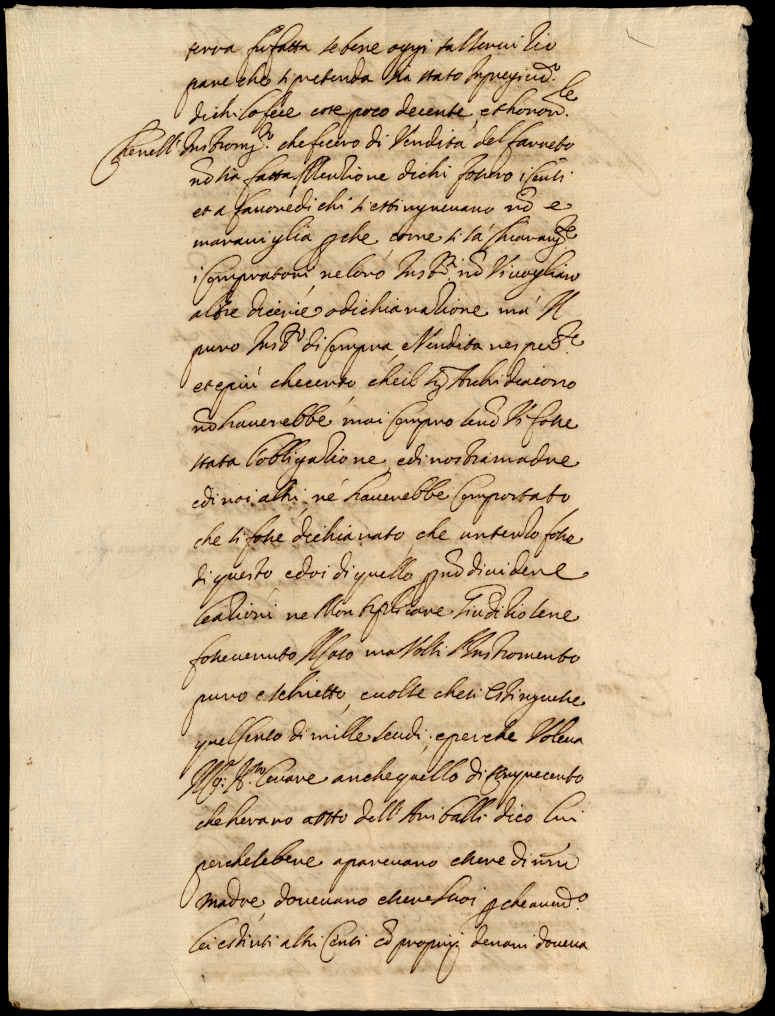 terra fu fatta se bene oggi
pare che si pretenda sia stato in pregiud.o
di chi lo fece cose poco decente, et honor.le
Che nell' Instrom.to che fecero di Vendita del farneto
nō sia fatta Mentione di chi fossero i Censi
et a favore di chi si estinguevano nō e
maraviglia che come si sà
i Compratori ne loro Inst.ti nō vi vogliano
altre dicerie o dichiaratione mà Il
puro Inst.to di Compra, e Vendita
et e più che certo che il Sig. Archidiacono
nō haverebbe mai Compro se nō Vi fosse
stata l'obligatione, e di nostra madre
e di noi altri, nè haverebbe Comportato
che si fosse dichiarato, che un terzo fosse
di questo e doi di quello nō dividere
le attioni ne Moltiplicare
fosse venuto Il Caso ma Volse l'Instromento
puro e schietto, e volse che si Estinguesse
quel Censo di mille scudi, e perche Voleva
levare anche quello di Cinquecento
che herano dell' Aniballi dico lui
perche se bene aparevano ch'ere di nr̄a
madre, dovevano che
lei estinti altri Censi cō proprij denari doveva